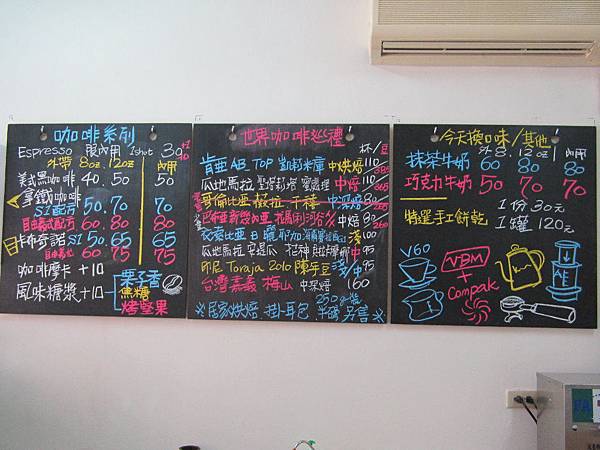 咖啡系列
Espresso 限內用 1shot 30
+10
外帶 8oz. 12oz 內用
美式黑咖啡 40. 50 50
拿鐵咖啡
S2配方 50. 70 70
自由義式配方 60. 80 80
卡布奇諾 S2 50. 65 65
自由義式 60 75 75
咖啡摩卡 +10
風味糖漿 +10
栗子香
焦糖
烤堅果
世界咖啡巡禮
杯/豆
肯亞AB TOP 中烘焙 110
瓜地馬拉 中焙 110
哥倫比亞 薇拉 中深焙 80
中焙 80
衣索比亞 日曬耶加 淺 100
瓜地馬拉 安提瓜 花神 中 95
印尼 Toraja 2010 陳年豆 95
台灣嘉義 梅山 中深焙 160
※居家烘焙 掛耳包 250g裝 半磅 另售※
今天換口味/其他
8. 12oz 內用
抹茶牛奶 60 80 80
巧克力牛奶 50 70 70
特選手工餅乾 1份30元
1罐120元
V60
VBM
+
Compak